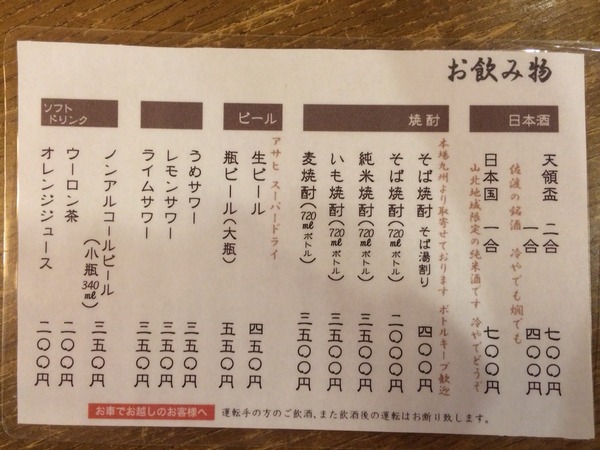 お飲み物
日本酒
天領盃 二合 七〇〇円
一合 四〇〇円
佐渡の銘酒 冷やでも燗でも
日本国 一合 七〇〇円
山北地域限定の純米酒です 冷やでどうぞ
焼酎
本場九州より取寄せております ボトルキープ歓迎
そば焼酎 そば湯割り 四〇〇円
そば焼酎(720mlボトル) 二〇〇〇円
純米焼酎(720mlボトル) 三五〇〇円
いも焼酎(720mlボトル) 三五〇〇円
麦焼酎(720mlボトル) 三五〇〇円
ビール
アサヒ スーパードライ
生ビール 四五〇円
瓶ビール(大瓶) 五五〇円
うめサワー 三五〇円
レモンサワー 三五〇円
ライムサワー 三五〇円
ソフト
ドリンク
ノンアルコールビール
(小瓶340ml) 三五〇円
ウーロン茶 二〇〇円
オレンジジュース 二〇〇円
お車でお越しのお客様へ 運転手の方のご飲酒、また飲酒後の運転はお断り致します。